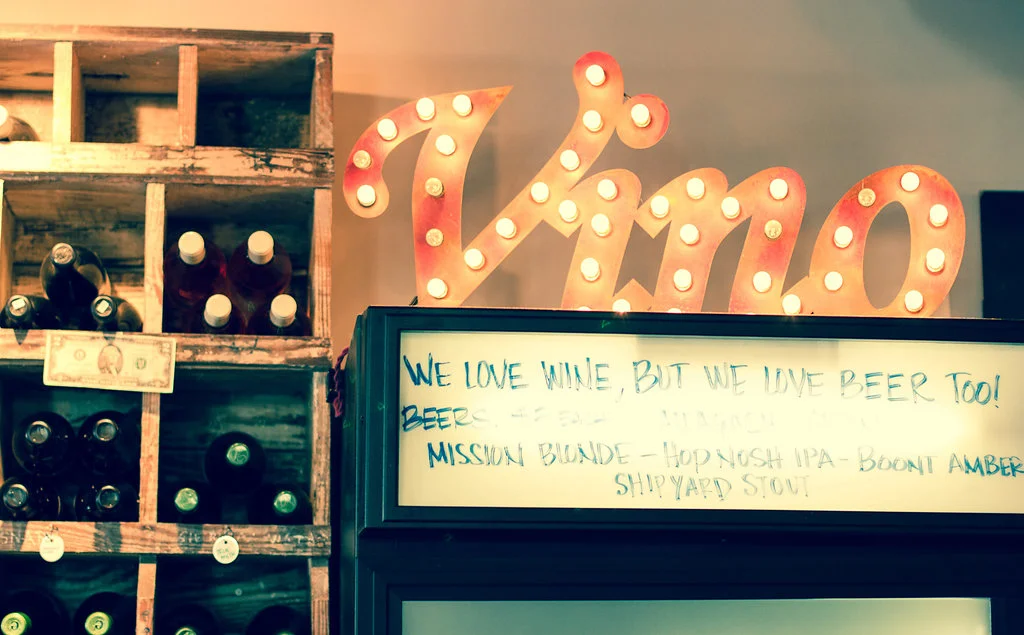 Vino
WE LOVE WINE, BUT WE LOVE BEER TOO!
BEERS
MISSION BLONDE - HOP NOSH IPA - BOONT AMBER
SHIPYARD STOUT